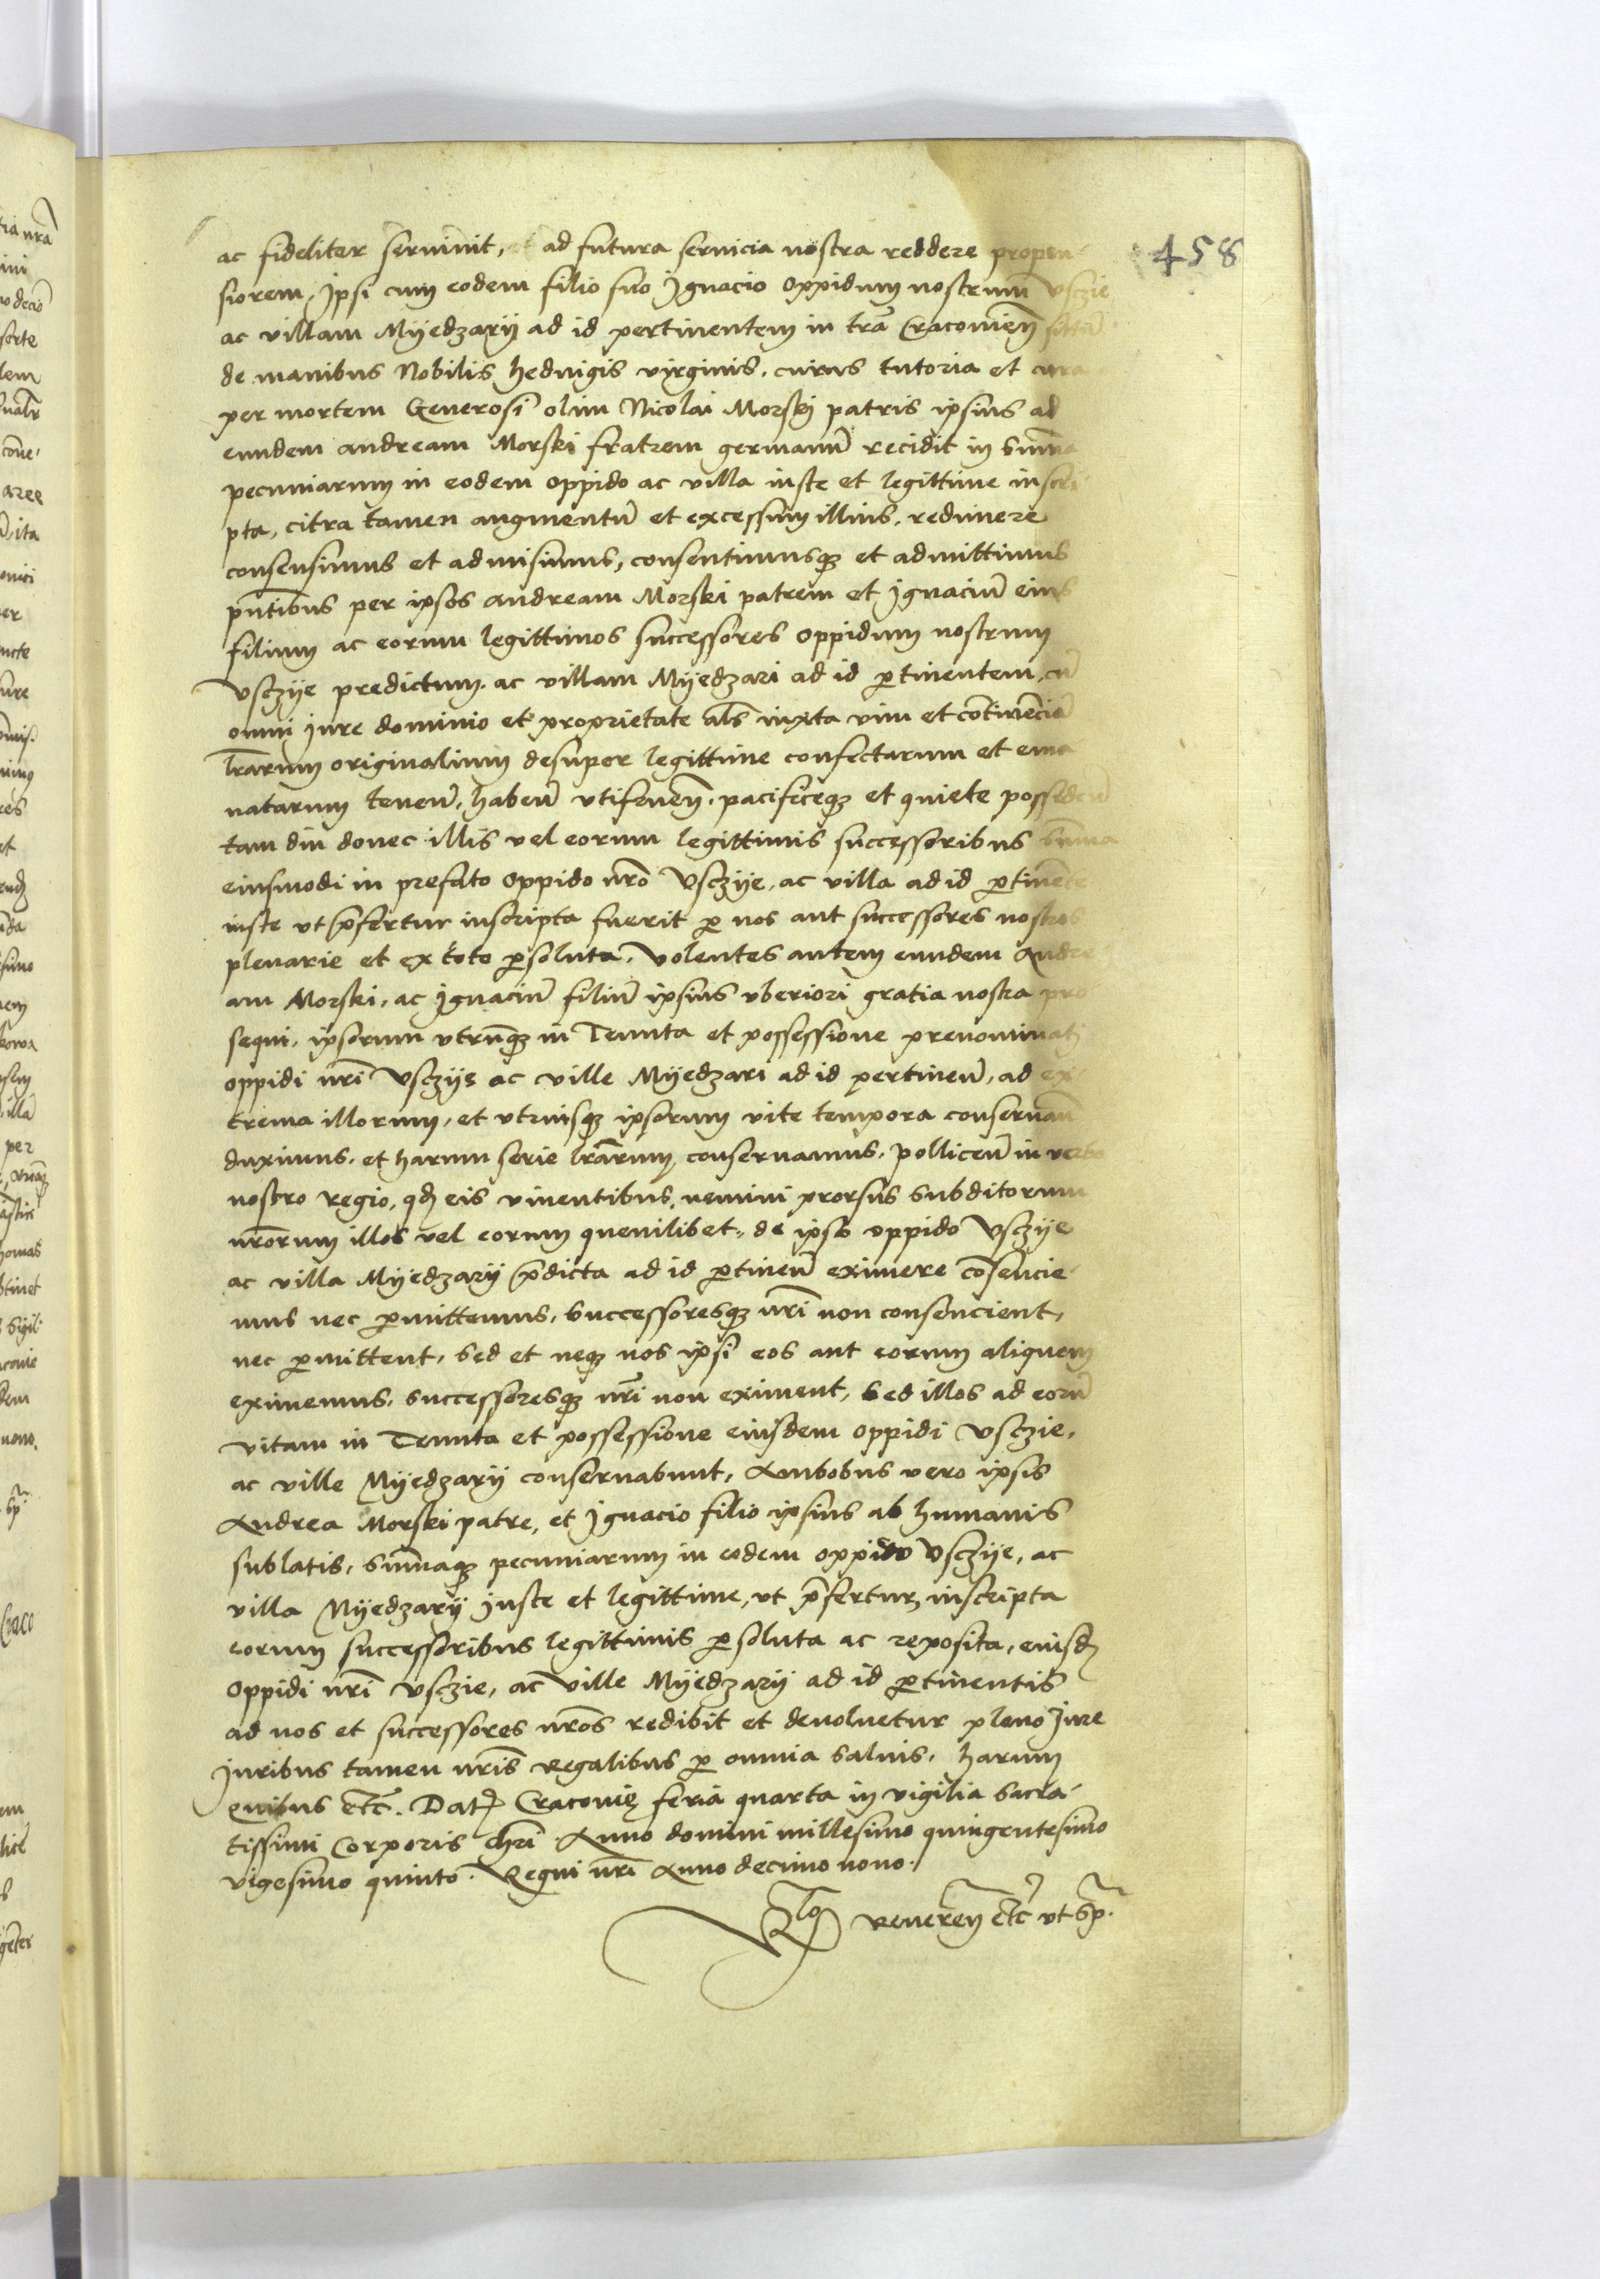 458
ac fideliter seruiuit, et ad futura seruicia nostra reddere propen
siorem, Ipsi cum eodem filio suo Ignacio oppidum nostrum Usczie
ac villam Myedzary ad id pertinentem in tra Cracouien sitam
de manibus Nobilis hedvigis virginis, cuius tutoria et cura
per mortem Generosi olim Nicolai Morski patris ipsius ad
eundem andream Morski fratrem germanu recidit in summa
pecuniarum in eodem oppido ac villa iuste et legittime inscri
pta, citra tamen augmentu et excessum illius, redimere
consensimus et admisimus, consentimusq et admittimus
pntibus per ipsos andream Morski patrem et Ignaciu eius
filium ac eorum legittimos successores oppidum nostrum
Usczye predictum, ac villam Myedzari ad id ptinentem, cu
omni iure dominio et proprietate als iuxta vim et continencia
lrarum originalium desuper legittime confectarum et ema
natarum tenen, haben utifruen, pacificeq et quiete possiden
tam diu donec illis vel eorum legittimis successoribus summa
eiusmodi in prefato oppido nro Usczye, ac villa ad id ptinente
iuste ut pfertur inscripta fuerit p nos aut successores nostros
plenarie et ex toto psoluta. Volentes autem eundem Andre
am Morski, ac Ignaciu filiu ipsius uberiori gratia nostra pro
sequi, ipsorum utrunq in Tenuta et possessione prenominati
oppidi nri Usczys ac ville Myedzari ad id pertinen, ad ex
trema illorum, et utriusq ipsorum vite tempora conseruan
duximus, et harum serie lrarum conseruamus, pollicen in verbo
nostro Regio, qd eis viuentibus, nemini prorsus subditorum
nrorum illos vel eorum quemlibet, de ipso oppido Usczye
ac villa Myedzary pdicta ad id ptinen eximere consencie
mus nec pmittemus, successoresq nri non consencient,
nec pmittent, sed et neq nos ipsi eos aut eorum aliquem
eximemus, successoresq nri non eximent, sed illos ad eoru
vitam in Tenuta et possessione eiusdem oppidi Usczie,
ac ville Myedzary conseruabunt, Ambobus vero ipsis
Andrea Morski patre, et Ignacio filio ipsius ab humanis
sublatis, summaq pecuniarum in eodem oppido Usczye, ac
villa Myedzary iuste et legittime, ut pfertur, inscripta
eorum successoribus legittimis psoluta ac reposita, eiusd
oppidi nri Usczie, ac ville Myedzary ad id ptinentis
ad nos et successores nros redibit et deuoluetur pleno iure
Iuribus tamen nris Regalibus p omnia saluis. harum
quibus etc. Dat Cracouię feria quarta in vigilia sacra
tissimi Corporis chri Anno domini millesimo quingentesimo
vigesimo quinto. Regni nri Anno decimo nono.
Reueren etc ut sp.